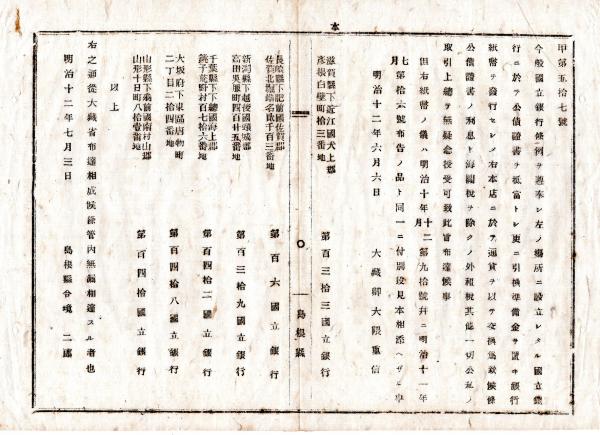 本
甲第五拾七號
今般國立銀行條例ヲ遵奉シ左ノ場所ニ設立シタル國立銀
行ニ於テ公債證書ヲ抵當トシ更ニ引換準備金ヲ置キ銀行
紙幣ヲ發行セシメ右本店ニ於テ通貨ヲ以テ交換爲致候條
公債證書ノ利息ト海關税ヲ除クノ外租税其他一切公私ノ
取引上總テ無疑念授受可致此旨布達候事
但右紙幣ノ儀ハ明治十年十二月第九拾號幷ニ明治十一年
七月第拾六號布告ノ品ト同一ニ付別段見本相添ヘザル事
明治十二年六月六日
大藏卿大隈重信
滋賀縣下近江國犬上郡
彦根白壁町拾三番地
第百三拾三國立銀行
島根縣
長崎縣下肥前國佐賀郡
第百六國立銀行
新潟縣下越後國頸城郡
高田吳服町四百廿五番地
第百三拾九國立銀行
千葉縣下下總國海上郡
銚子荒野村百七拾六番地
第百四拾二國立銀行
大坂府下東區唐物町
二丁目二拾四番地
第百四拾八國立銀行
山形縣下羽前國南村山郡
山形十日町八拾壹番地
第百四拾國立銀行
以上
右之通從大藏省布達相成候條管內無漏相達スル者也
明治十二年七月三日
島根縣令境二郎